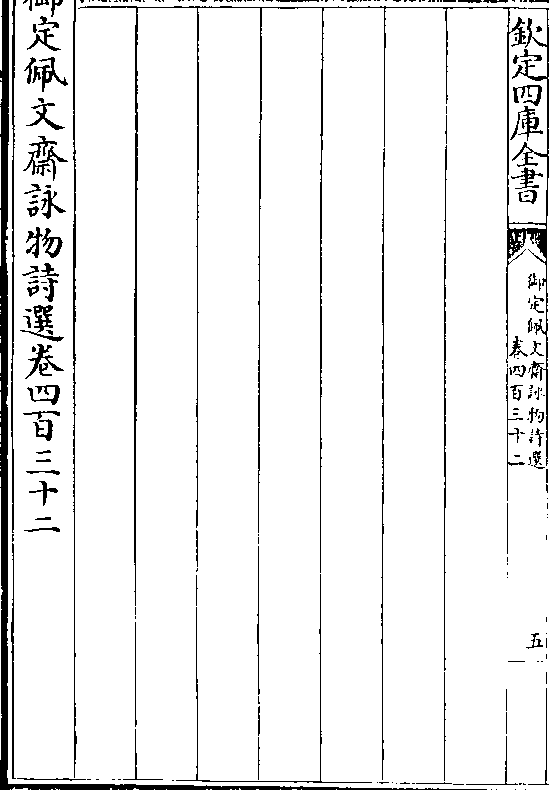 欽定四庫全書
御定佩文齋詠物詩選
卷四百三十二
五
御定佩文齋詠物詩選卷四百三十二